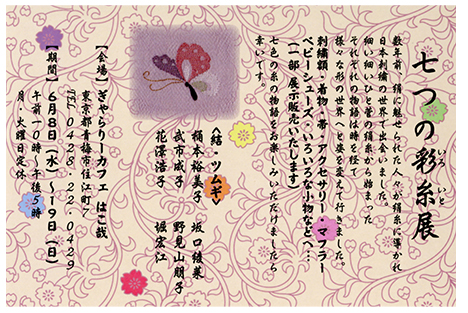 七つの彩糸展
いろ いと
数年前、絹に魅せられた人々が絹糸に導かれ
日本刺繍の世界で出会いました。
細い細いひと筋の絹糸から始まった
それぞれの物語は時を経て
様々な形の世界へと姿を変えて行きました。
刺繍額・着物・帯・アクセサリー・マフラー
ベビーシューズ・いろいろな小物などへ…
(一部 展示販売いたします)
七色の糸の物語をお楽しみいただけましたら
幸いです。
《結・ツムギ》
桶本裕美子 坂口綾菜
武市成子 野見山朋子
花澤浩子 堀宏江
【会場】ぎゃらりーカフェ はこ哉
東京都青梅市住江町7
TEL 0428・22・0429
【期間】6月8日(水)〜19日(日)
午前10時〜午後5時
月、火曜日定休